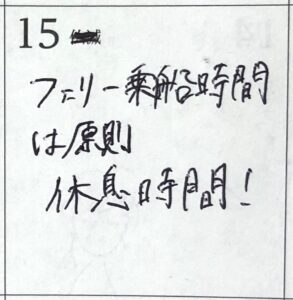 15
フェリー乗船時間
は原則
休息時間!